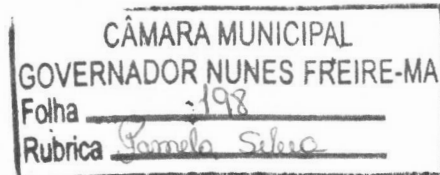 CÂMARA MUNICIPAL
GOVERNADOR NUNES FREIRE-MA
Folha 198
Rubrica Pamela Silva